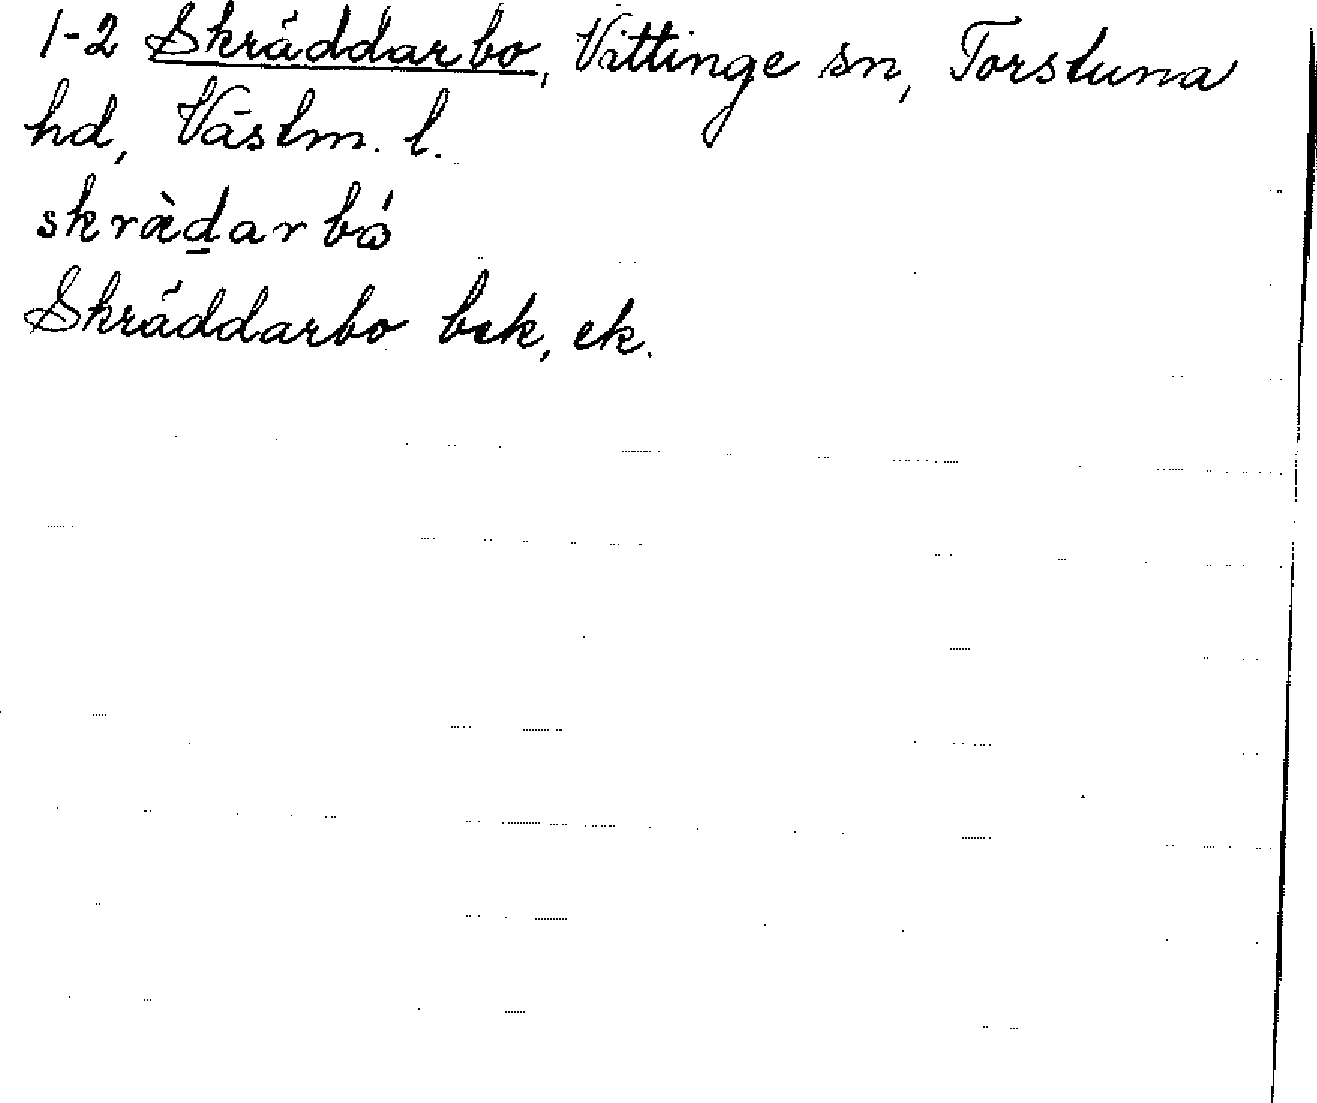 1-2 Skräddarbo, Vittinge sn, Torstuna
hd, Västm. l.
skrä̀d̲arbó
Skräddarbo bek, ek.